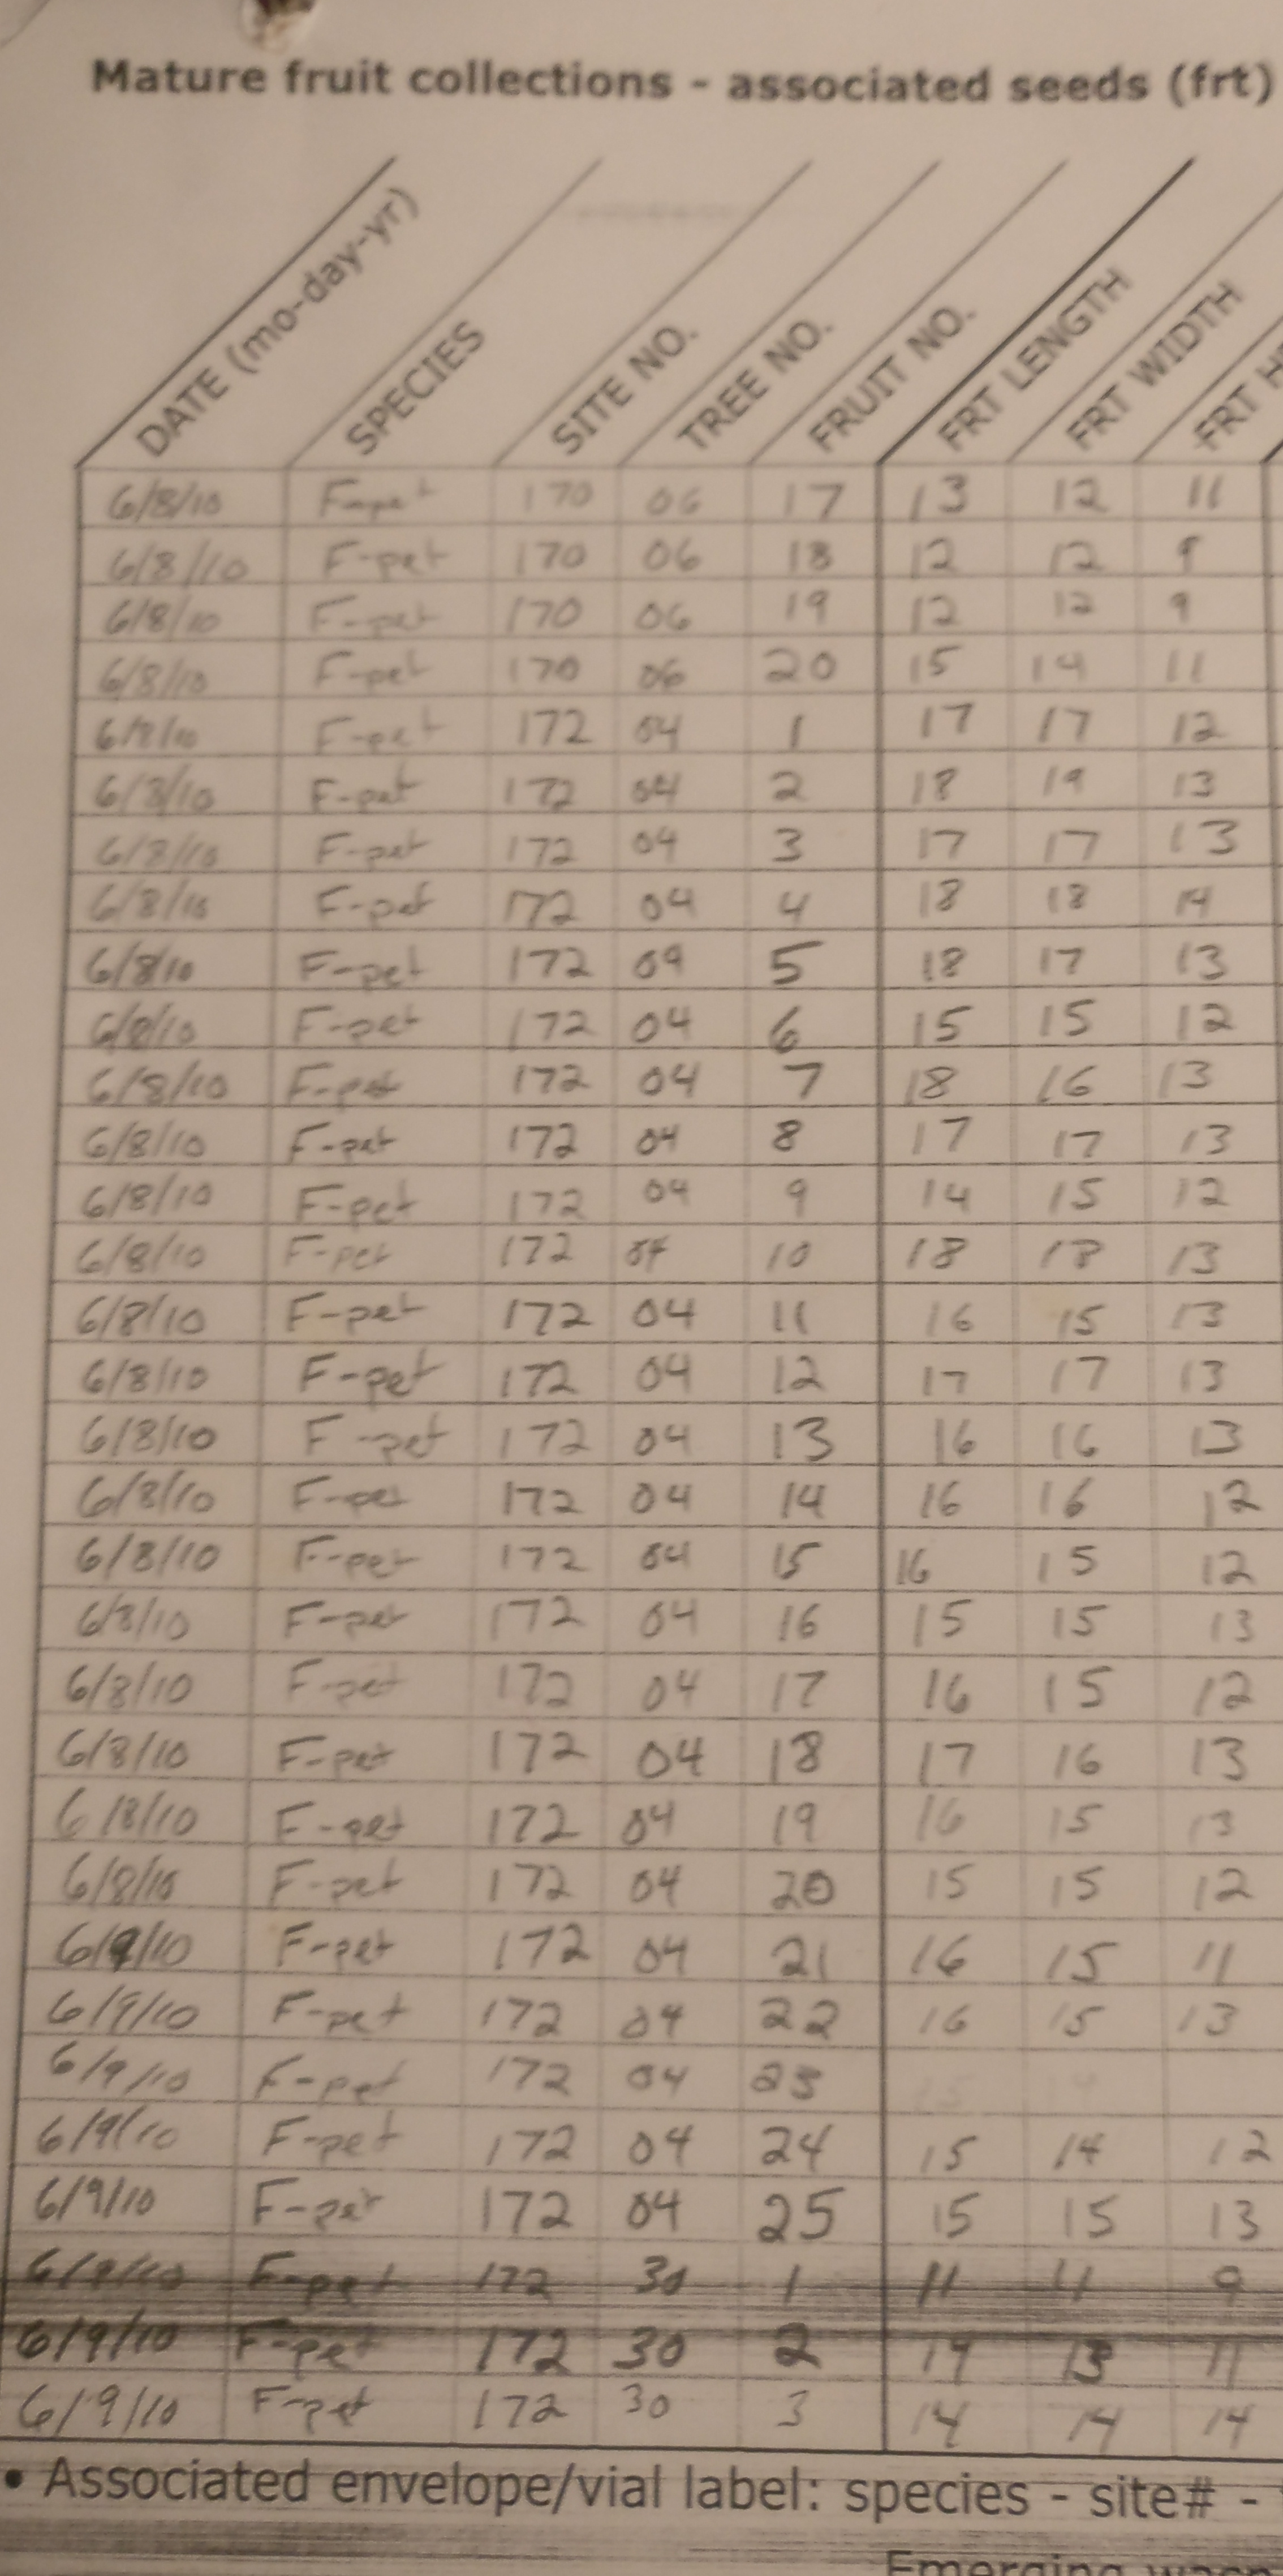 Mature fruit collections - associated seeds (frt)
DATE (mo-day-yr) SPECIES SITE NO. TREE NO. FRUIT NO. FRT LENGTH FRT WIDTH FRT H
6/8/10 F-pet 170 06 17 13 12 11
6/8/10 F-pet 170 06 18 12 12 9
6/8/10 F-pet 170 06 19 12 12 9
6/8/10 F-pet 170 06 20 15 14 11
6/8/10 F-pet 172 04 1 17 17 12
6/8/10 F-pet 172 04 2 18 19 13
6/8/10 F-pet 172 04 3 17 17 13
6/8/10 F-pet 172 04 4 18 18 14
6/8/10 F-pet 172 04 5 18 17 13
6/8/10 F-pet 172 04 6 15 15 12
6/8/10 F-pet 172 04 7 18 16 13
6/8/10 F-pet 172 04 8 17 17 13
6/8/10 F-pet 172 04 9 14 15 12
6/8/10 F-pet 172 04 10 18 18 13
6/8/10 F-pet 172 04 11 16 15 13
6/8/10 F-pet 172 04 12 17 17 13
6/8/10 F-pet 172 04 13 16 16 13
6/8/10 F-pet 172 04 14 16 16 12
6/8/10 F-pet 172 04 15 16 15 12
6/8/10 F-pet 172 04 16 15 15 13
6/8/10 F-pet 172 04 17 16 15 12
6/8/10 F-pet 172 04 18 17 16 13
6/8/10 F-pet 172 04 19 16 15 13
6/8/10 F-pet 172 04 20 15 15 12
6/9/10 F-pet 172 04 21 16 15 11
6/9/10 F-pet 172 04 22 16 15 13
6/9/10 F-pet 172 04 23
6/9/10 F-pet 172 04 24 15 14 12
6/9/10 F-pet 172 04 25 15 15 13
6/9/10 F-pet 172 30 1 11 11 9
6/9/10 F-pet 172 30 2 14 13 11
6/9/10 F-pet 172 30 3 14 14 14
• Associated envelope/vial label: species - site# -
Emerging